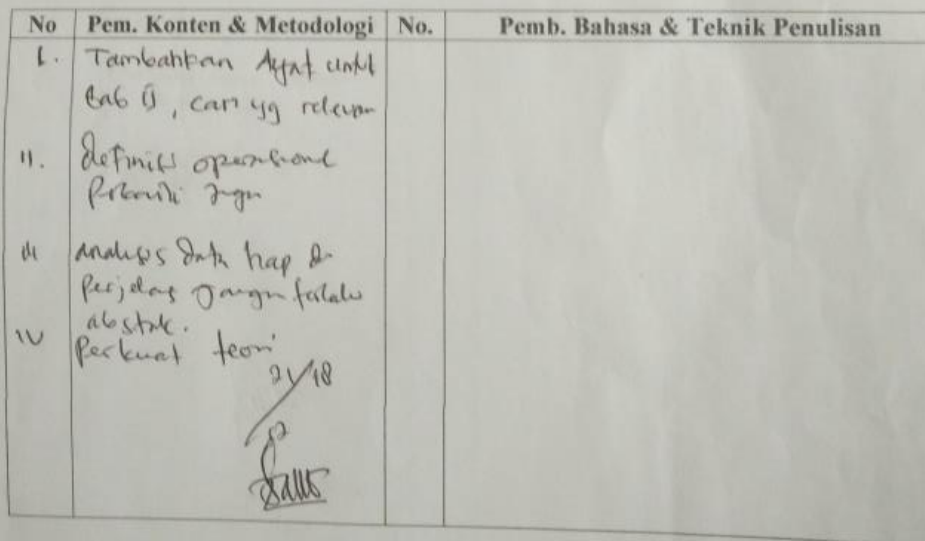 No Pem. Konten & Metodologi No. Pemb. Bahasa & Teknik Penulisan
I. Tambahkan Ayat untuk
Bab II, cari yg relevan
II. definisi operasional
juga
analisis data hap
perjelas jangan terlalu
abstrak.
IV perkuat teori